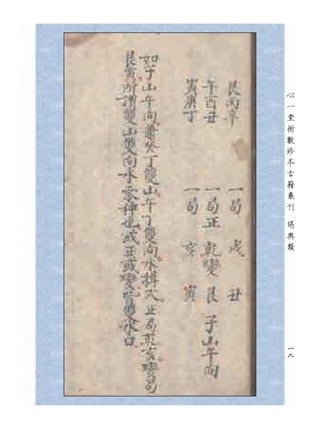 心一堂術數珍本古籍叢刊 堪輿類
艮丙辛 一局 戌 丑
午酉丑 一局正 乾變 艮 子山午向
寅庚丁 一局 亥 寅
如子山午向兼癸丁雙山午丁雙向水排 正局乾亥變局
艮寅所謂雙山雙向水零神也或正或變皆雙水口
一八